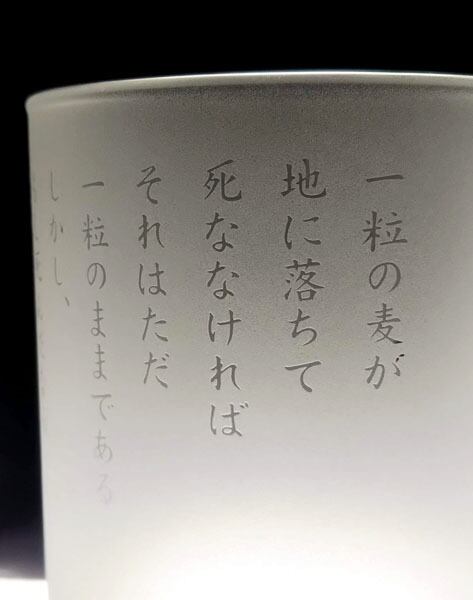 一粒の麦が
地に落ちて
死ななければ
それはただ
一粒のままである
しかし、